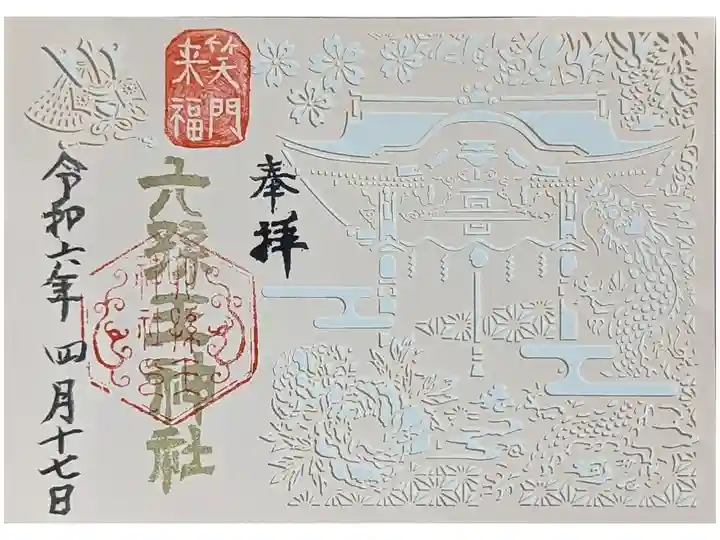 奉拝
笑門
来福
六孫王神社
令和六年四月十七日